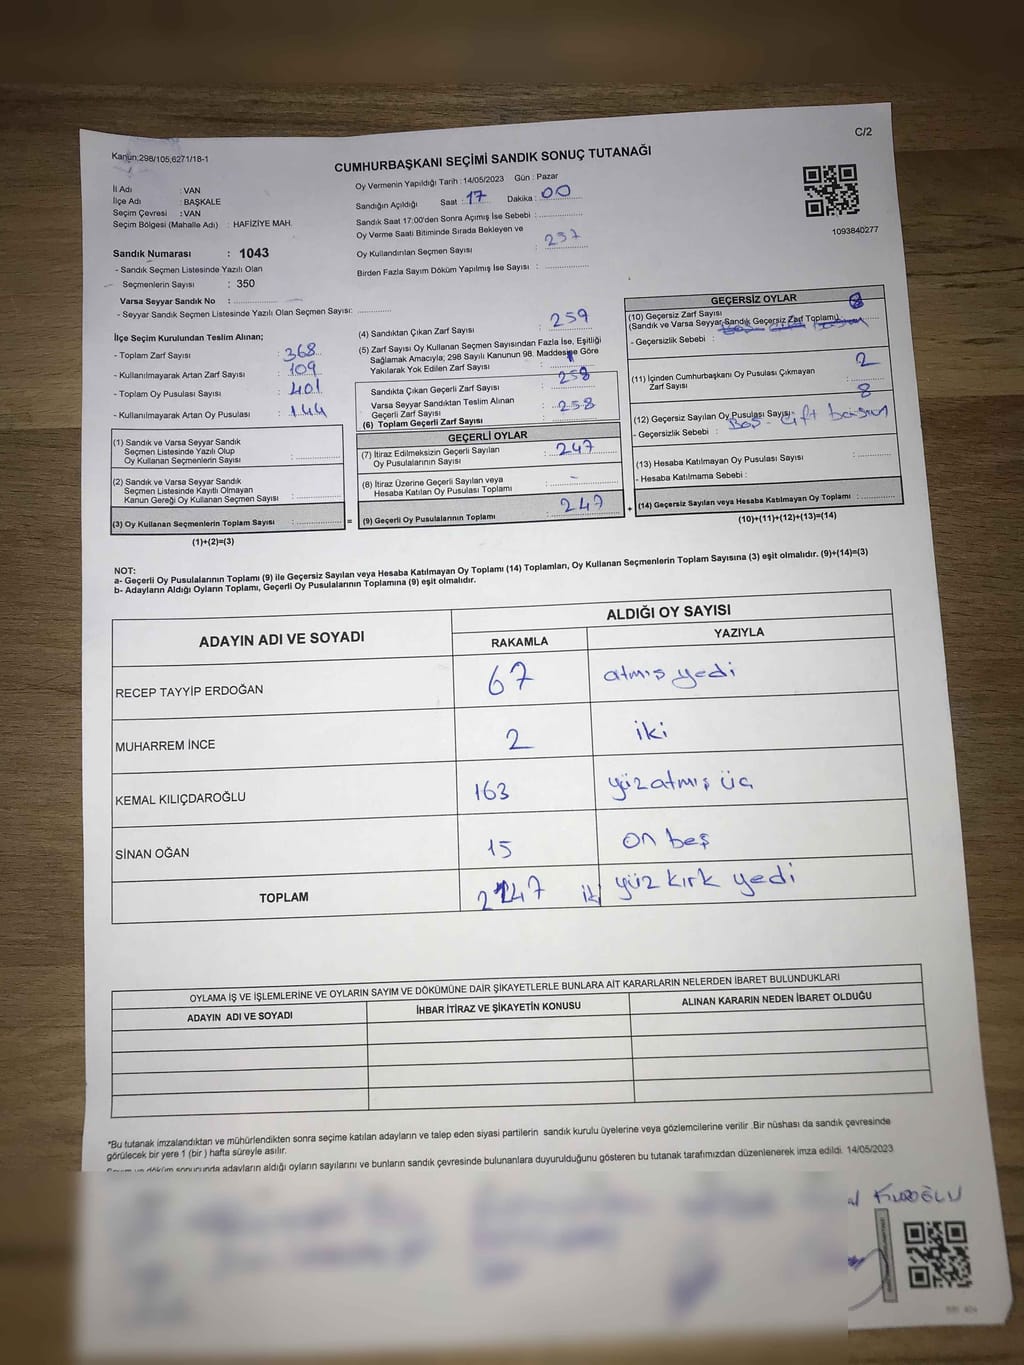 C/2
Kanun;298/105,6271/18-1
CUMHURBAŞKANI SEÇİMİ SANDIK SONUÇ TUTANAĞI
İl Adı : VAN
İlçe Adı : BAŞKALE
Seçim Çevresi : VAN
Seçim Bölgesi (Mahalle Adı) : HAFİZİYE MAH.
Oy Vermenin Yapıldığı Tarih : 14/05/2023 Gün : Pazar
Sandığın Açıldığı Saat : 17 Dakika : 00
Sandık Saat 17:00'den Sonra Açımış İse Sebebi :
Oy Verme Saati Bitiminde Sırada Bekleyen ve
Oy Kullandırılan Seçmen Sayısı :
Birden Fazla Sayım Döküm Yapılmış İse Sayısı :
1093840277
Sandık Numarası : 1043
- Sandık Seçmen Listesinde Yazılı Olan
Seçmenlerin Sayısı : 350
Varsa Seyyar Sandık No :
- Seyyar Sandık Seçmen Listesinde Yazılı Olan Seçmen Sayısı:
İlçe Seçim Kurulundan Teslim Alınan;
- Toplam Zarf Sayısı : 368
- Kullanılmayarak Artan Zarf Sayısı : 109
- Toplam Oy Pusulası Sayısı : 401
- Kullanılmayarak Artan Oy Pusulası : 144
(1) Sandık ve Varsa Seyyar Sandık
Seçmen Listesinde Yazılı Olup
Oy Kullanan Seçmenlerin Sayısı :
(2) Sandık ve Varsa Seyyar Sandık
Seçmen Listesinde Kayıtlı Olmayan
Kanun Gereği Oy Kullanan Seçmen Sayısı :
(3) Oy Kullanan Seçmenlerin Toplam Sayısı : =
(1)+(2)=(3)
(4) Sandıktan Çıkan Zarf Sayısı : 259
(5) Zarf Sayısı Oy Kullanan Seçmen Sayısından Fazla İse, Eşitliği
Sağlamak Amacıyla; 298 Sayılı Kanunun 98. Maddesine Göre
Yakılarak Yok Edilen Zarf Sayısı :
Sandıkta Çıkan Geçerli Zarf Sayısı : 258
Varsa Seyyar Sandıktan Teslim Alınan
Geçerli Zarf Sayısı
(6) Toplam Geçerli Zarf Sayısı : 258
GEÇERLİ OYLAR
(7) İtiraz Edilmeksizin Geçerli Sayılan
Oy Pusulalarının Sayısı : 247
(8) İtiraz Üzerine Geçerli Sayılan veya
Hesaba Katılan Oy Pusulası Toplamı : -
(9) Geçerli Oy Pusulalarının Toplamı : 247 +
GEÇERSİZ OYLAR
(10) Geçersiz Zarf Sayısı
(Sandık ve Varsa Seyyar Sandık Geçersiz Zarf Toplamı) :
- Geçersizlik Sebebi :
(11) İçinden Cumhurbaşkanı Oy Pusulası Çıkmayan
Zarf Sayısı : 2
(12) Geçersiz Sayılan Oy Pusulası Sayısı : 8
- Geçersizlik Sebebi : Boş - çift basılan
(13) Hesaba Katılmayan Oy Pusulası Sayısı :
- Hesaba Katılmama Sebebi :
(14) Geçersiz Sayılan veya Hesaba Katılmayan Oy Toplamı :
(10)+(11)+(12)+(13)=(14)
NOT:
a- Geçerli Oy Pusulalarının Toplamı (9) ile Geçersiz Sayılan veya Hesaba Katılmayan Oy Toplamı (14) Toplamları, Oy Kullanan Seçmenlerin Toplam Sayısına (3) eşit olmalıdır. (9)+(14)=(3)
b- Adayların Aldığı Oyların Toplamı, Geçerli Oy Pusulalarının Toplamına (9) eşit olmalıdır.
ADAYIN ADI VE SOYADI
ALDIĞI OY SAYISI
RAKAMLA YAZIYLA
RECEP TAYYİP ERDOĞAN 67 atmış yedi
MUHARREM İNCE 2 iki
KEMAL KILIÇDAROĞLU 163 yüz atmış üç
SİNAN OĞAN 15 on beş
TOPLAM 247 iki yüz kırk yedi
OYLAMA İŞ VE İŞLEMLERİNE VE OYLARIN SAYIM VE DÖKÜMÜNE DAİR ŞİKAYETLERLE BUNLARA AİT KARARLARIN NELERDEN İBARET BULUNDUKLARI
ADAYIN ADI VE SOYADI İHBAR İTİRAZ VE ŞİKAYETİN KONUSU ALINAN KARARIN NEDEN İBARET OLDUĞU
*Bu tutanak imzalandıktan ve mühürlendikten sonra seçime katılan adayların ve talep eden siyasi partilerin sandık kurulu üyelerine veya gözlemcilerine verilir .Bir nüshası da sandık çevresinde
görülecek bir yere 1 (bir ) hafta süreyle asılır.
Sayım ve döküm sonucunda adayların aldığı oyların sayılarını ve bunların sandık çevresinde bulunanlara duyurulduğunu gösteren bu tutanak tarafımızdan düzenlenerek imza edildi. 14/05/2023